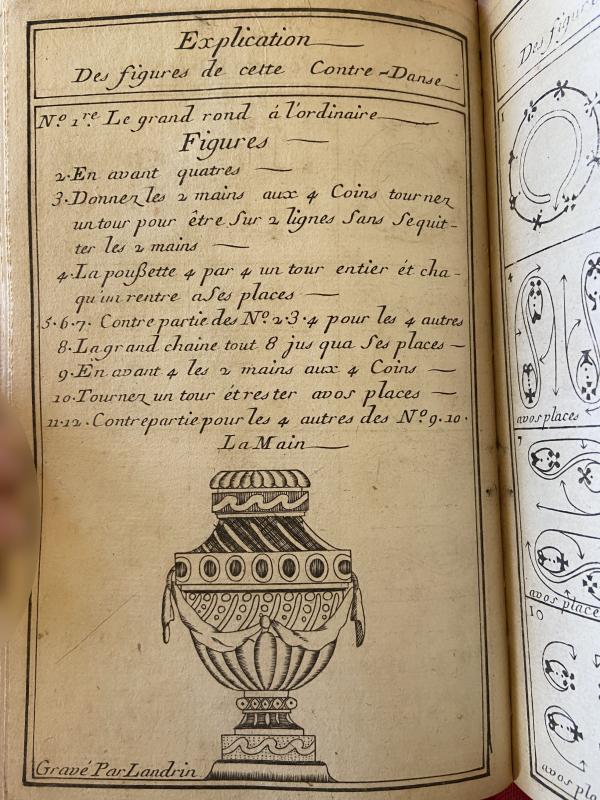 Explication
Des figures de cette Contre-Danse
Nº 1re. Le grand rond á l'ordinaire
Figures
2. En avant quatres
3. Donnez les 2 mains aux 4 Coins tournez
un tour pour être Sur 2 lignes Sans Se quit-
ter les 2 mains
4. La poußette 4 par 4 un tour entier ét cha-
qu'un rentre a Ses places
5. 6. 7. Contre partie des Nº. 2. 3. 4 pour les 4 autres
8. La grand chaine tout 8 jus qua Ses places
9. En avant 4 les 2 mains aux 4 Coins
10. Tournez un tour ét rester a vos places
11. 12. Contre partie pour les 4 autres des Nº. 9. 10.
La Main
Gravé Par Landrin
Des figure
1
4
a vos places
7
a vos place
10
a vos pla